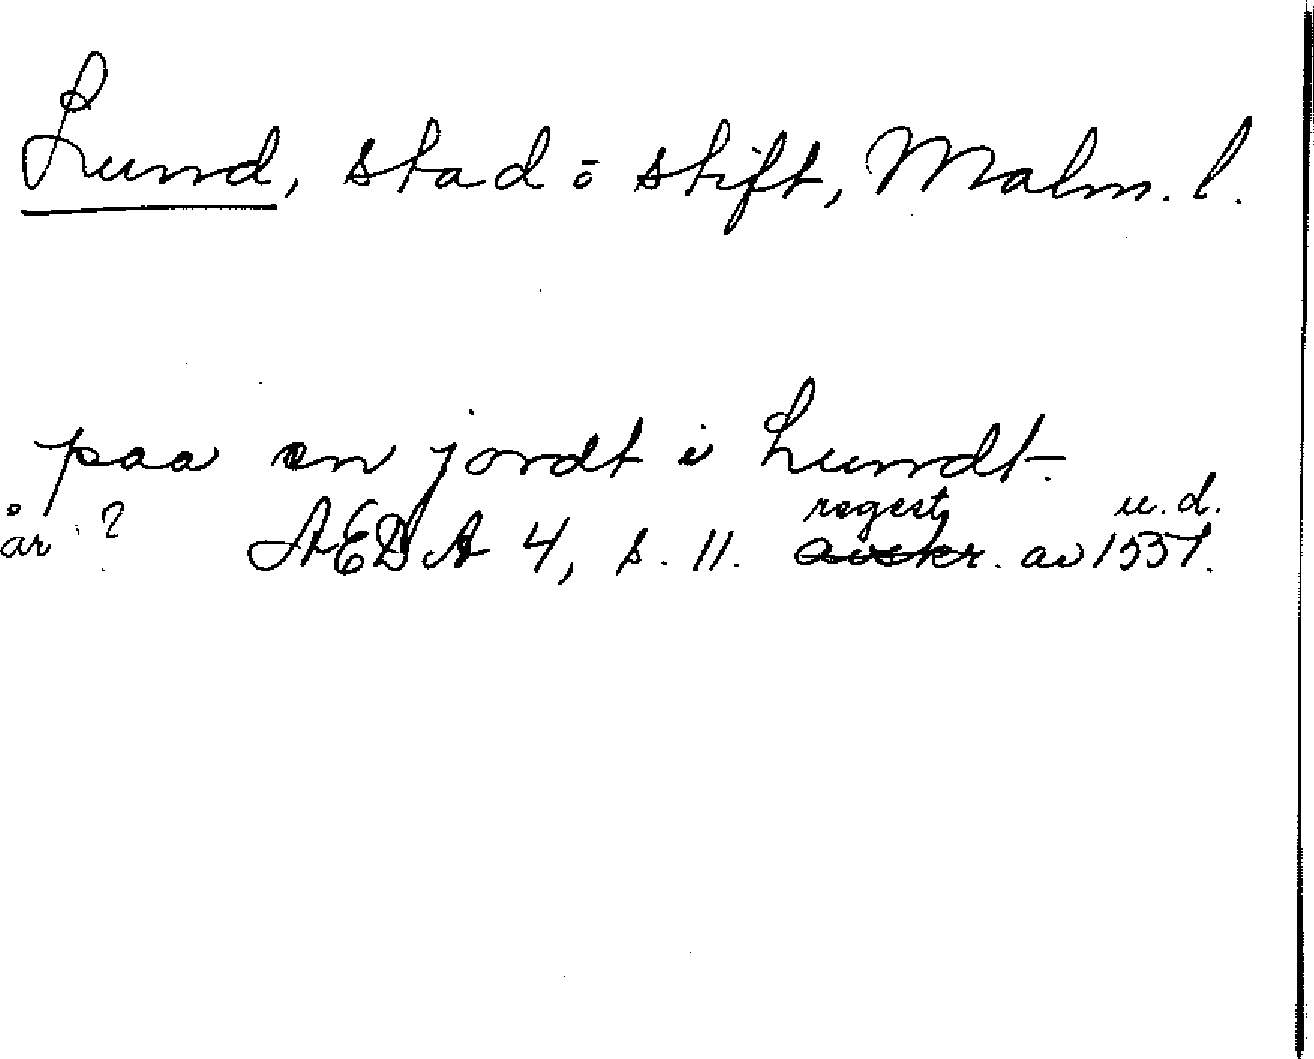 Lund, stad o stift, Malm. l.
paa en jordt i Lundt.
regest u. d.
år? AEDA 4, s. 11. avskr. av 1537.